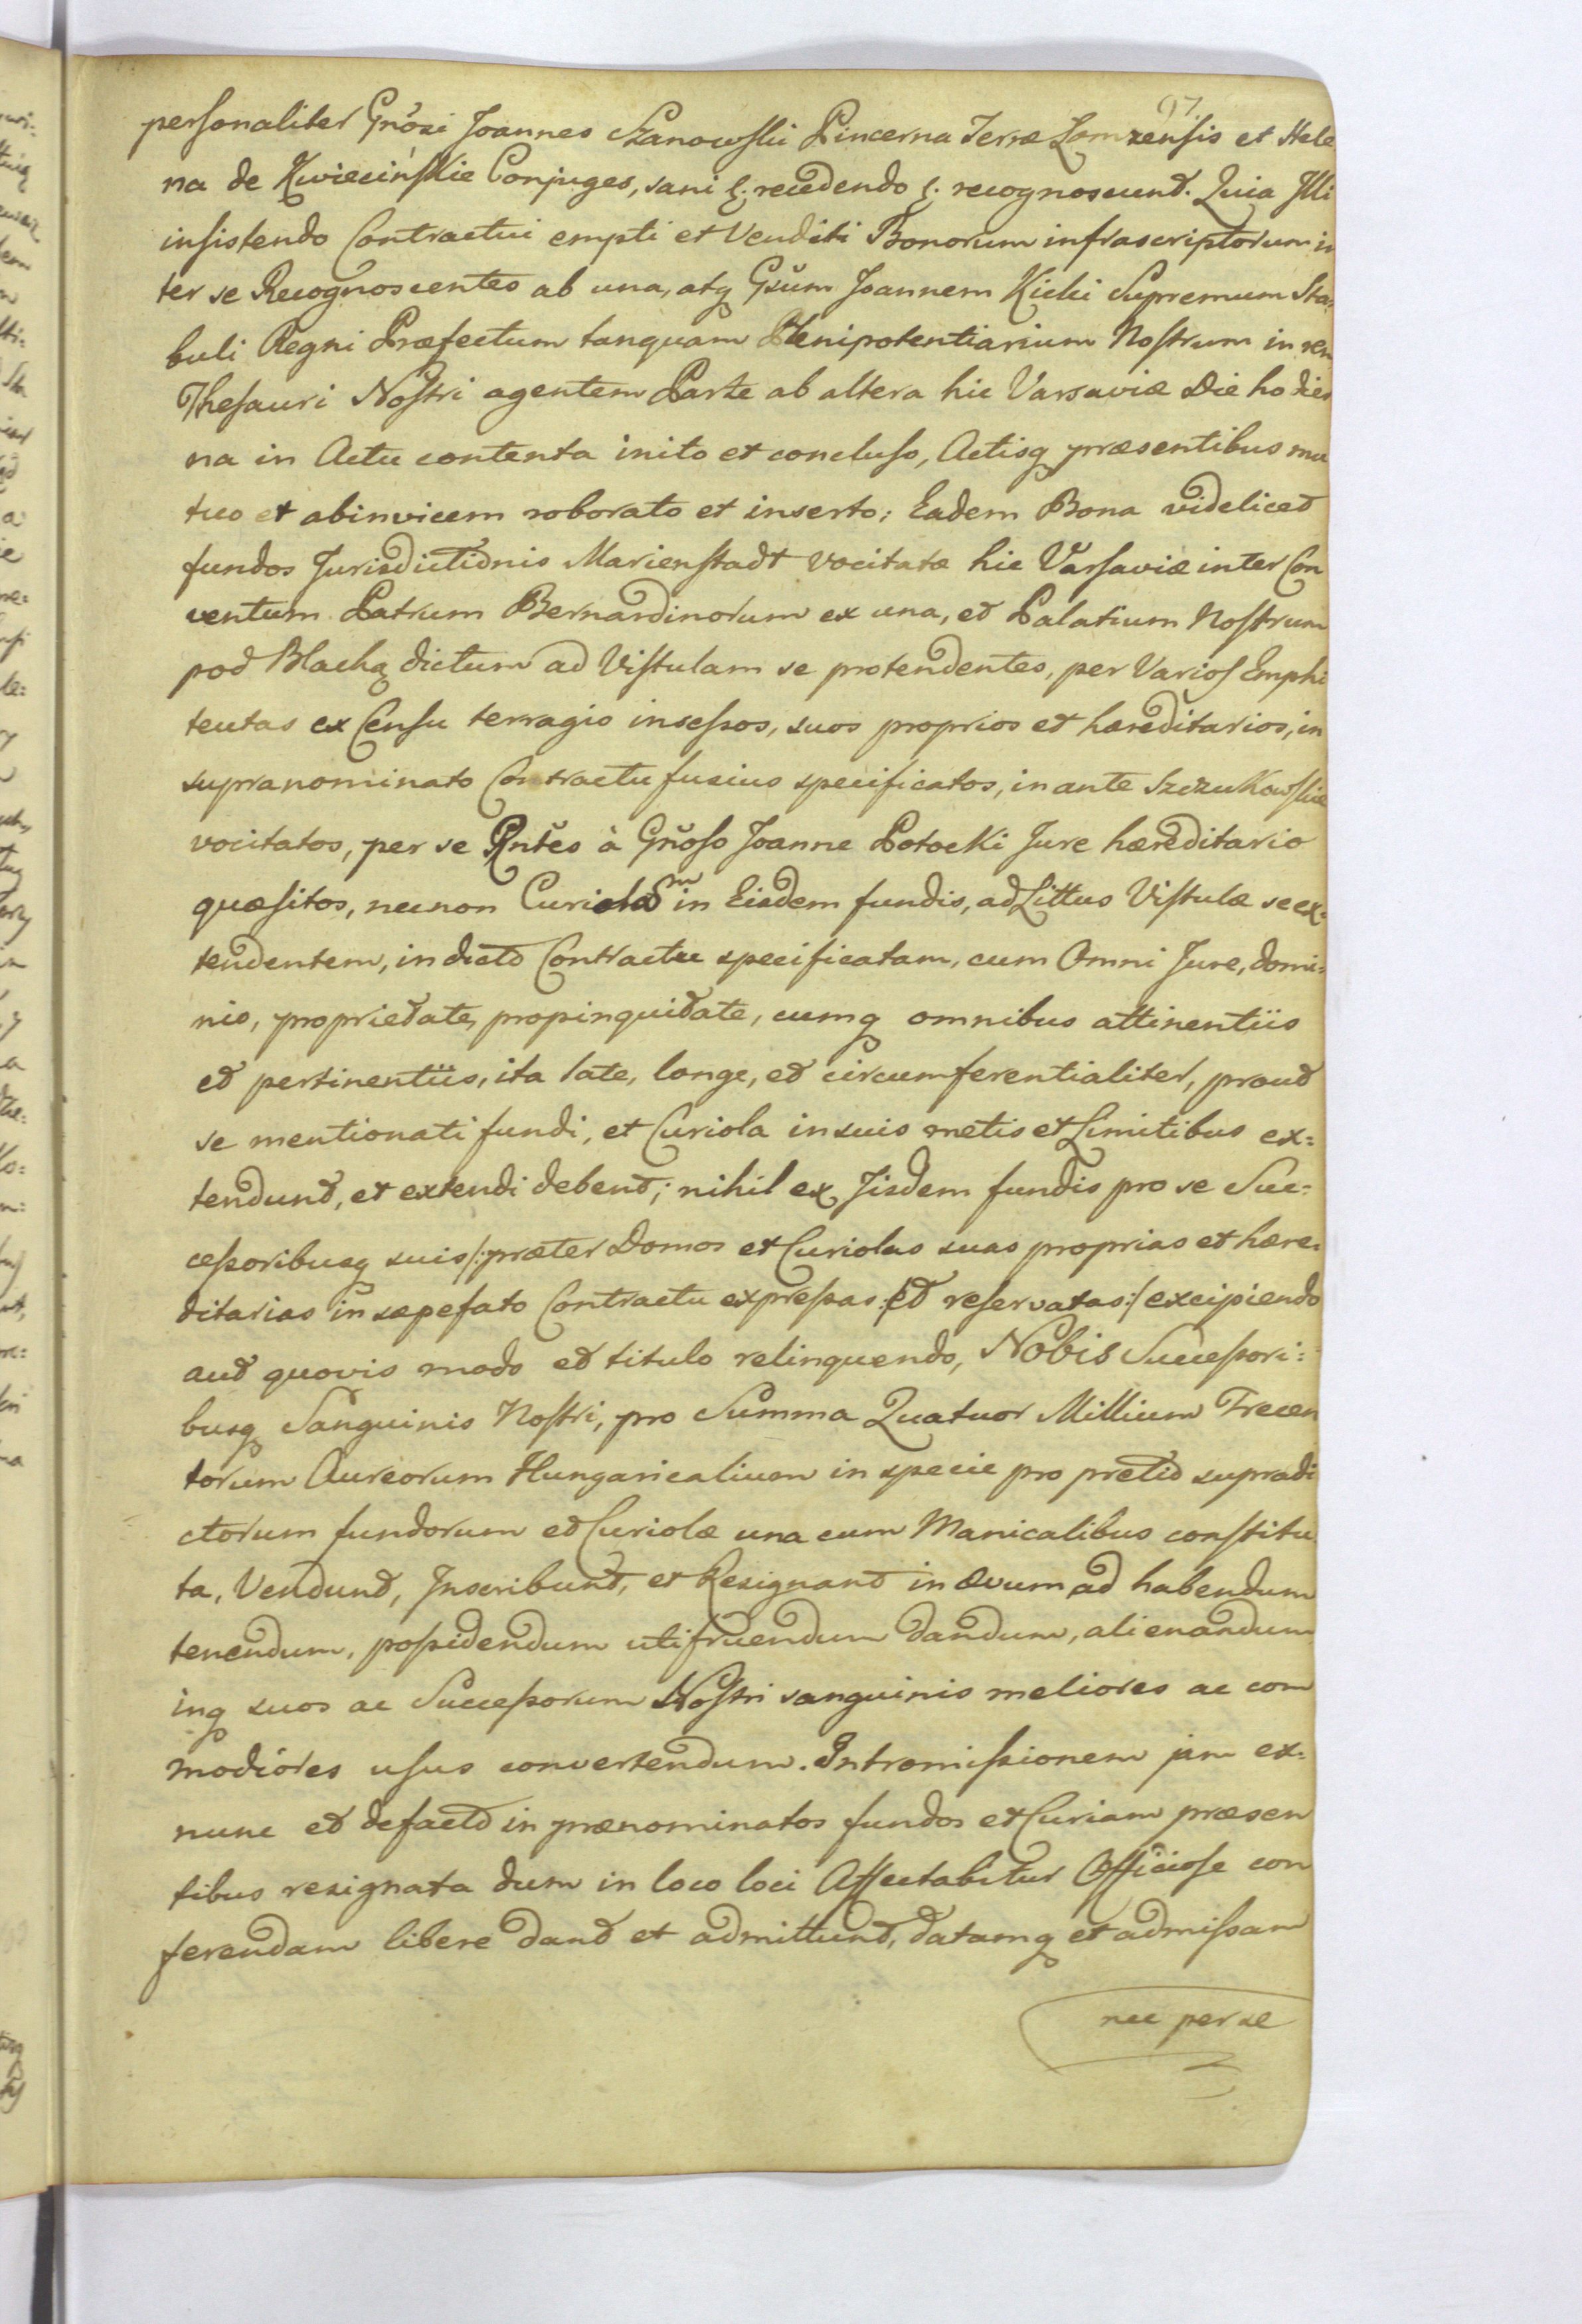 97
personaliter Gnosi Joannes Szanowski Pincerna Terræ Lomzensis et Hele
na de Kwiecińskie Conjuges, sani &. recedendo &. recognoscunt. Quia Illi
insistendo Contractui empti et Venditi Bonorum infrascriptorum in
ter se Recognoscentes ab una, atq Gsum Joannem Kicki Supremum Sta=
buli Regni Præfectum tanquam Plenipotentiarium Nostrum in rem
Thesauri Nostri agentem Parte ab altera hic Varsaviæ Die hodier
na in Actu contenta inito et concluso, Actisq præsentibus mu
tuo et abinvicem roborato et inserto; Eadem Bona videlicet
fundos Jurisdictionis Marienstadt vocitatæ hic Varsaviæ inter Con
ventum Patrum Bernardinorum ex una, et Palatium Nostrum
pod Blachą dictum ad Vistulam se protendentes, per Varios Emphi
teutas ex Censu terragio insessos, suos proprios et hæreditarios, in
supranominato Contractu fusius specificatos, in ante Szczukowskie
vocitatos, per se Rntes à Gnoso Joanne Potocki Jure hæreditario
quæsitos, necnon Curiolam in Eisdem fundis, ad Littus Vistulæ se ex=
tendentem, in dicto Contractu specificatam, cum Omni Jure, domi=
nio, proprietate, propinquitate, cumq omnibus attinentiis
et pertinentiis, ita late, longe, et circumferentialiter, prout
se mentionati fundi, et Curiola in suis metis et Limitibus ex=
tendunt, et extendi debent; nihil ex Iisdem fundis pro se Suc=
cessoribusq suis /: præter Domos et Curiolas suas proprias et hære=
ditarias in sæpefato Contractu expressas et reservatas :/ excipiendo
aut quovis modo et titulo relinquendo, Nobis Successori=
busq Sanguinis Nostri, pro Summa Quatuor Millium Trecen
torum Aureorum Hungaricalium in specie pro pretio supradi
ctorum fundorum et Curiolæ una cum Manicalibus constitu
ta, Vendunt, Inscribunt, et Resignant in Ævum ad habendum
tenendum, possidendum utifruendum dandum, alienandum
inq suos ac Successorum Nostri sanguinis meliores ac com
modiores usus convertendum. Intromissionem jam ex=
nunc et defacto in prænominatos fundos et Curiam præsen
tibus resignata dum in loco loci Affectabitur Officiose con
ferendam libere dant et admittunt, datamq et admissam
nec per se